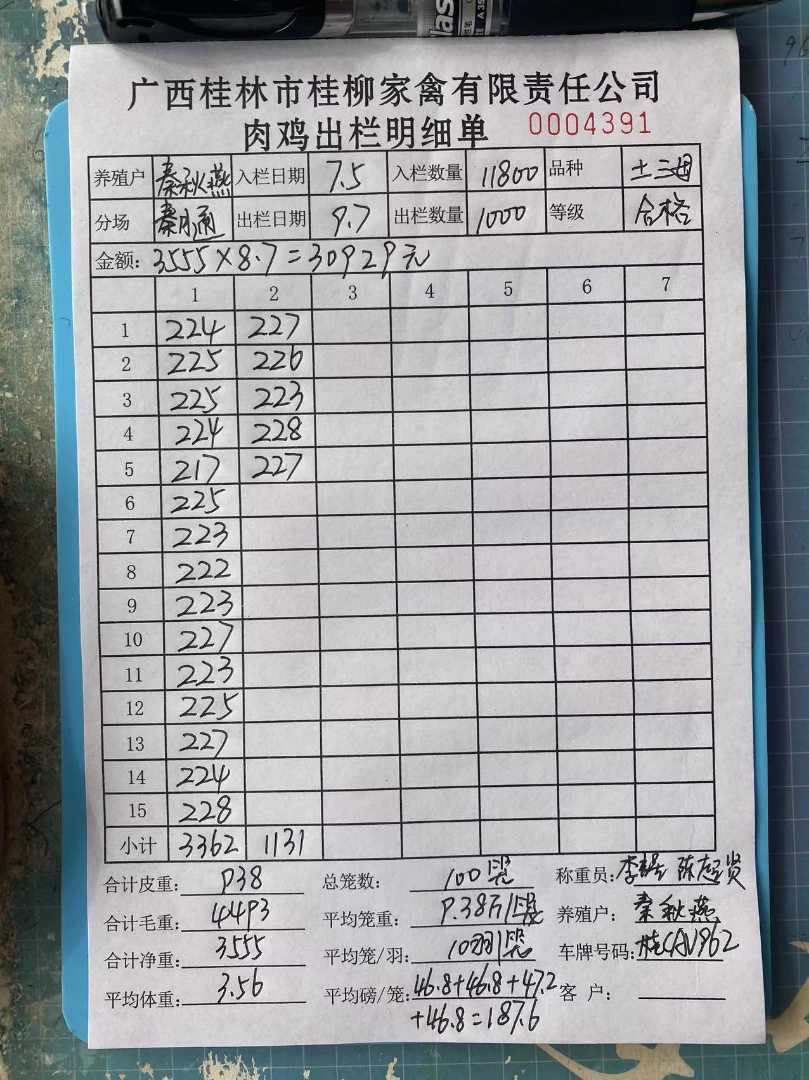 广西桂林市桂柳家禽有限责任公司
肉鸡出栏明细单 0004391
养殖户 秦秋燕 入栏日期 7.5 入栏数量 11800 品种 土三母
分场 秦 出栏日期 9.7 出栏数量 1000 等级 合格
金额: 3555×8.7=30929元
1 2 3 4 5 6 7
1 224 227
2 225 226
3 225 223
4 224 228
5 217 227
6 225
7 223
8 222
9 223
10 227
11 223
12 225
13 227
14 224
15 228
小计 3362 1131
合计皮重: 938 总笼数: 100笼 称重员: 李 陈超贤
合计毛重: 4493 平均笼重: 9.38斤/笼 养殖户: 秦秋燕
合计净重: 3555 平均笼/羽: 10羽/笼 车牌号码: 桂CAV962
平均体重: 3.56 平均磅/笼: 46.8+46.8+47.2 客 户:
+46.8=187.6